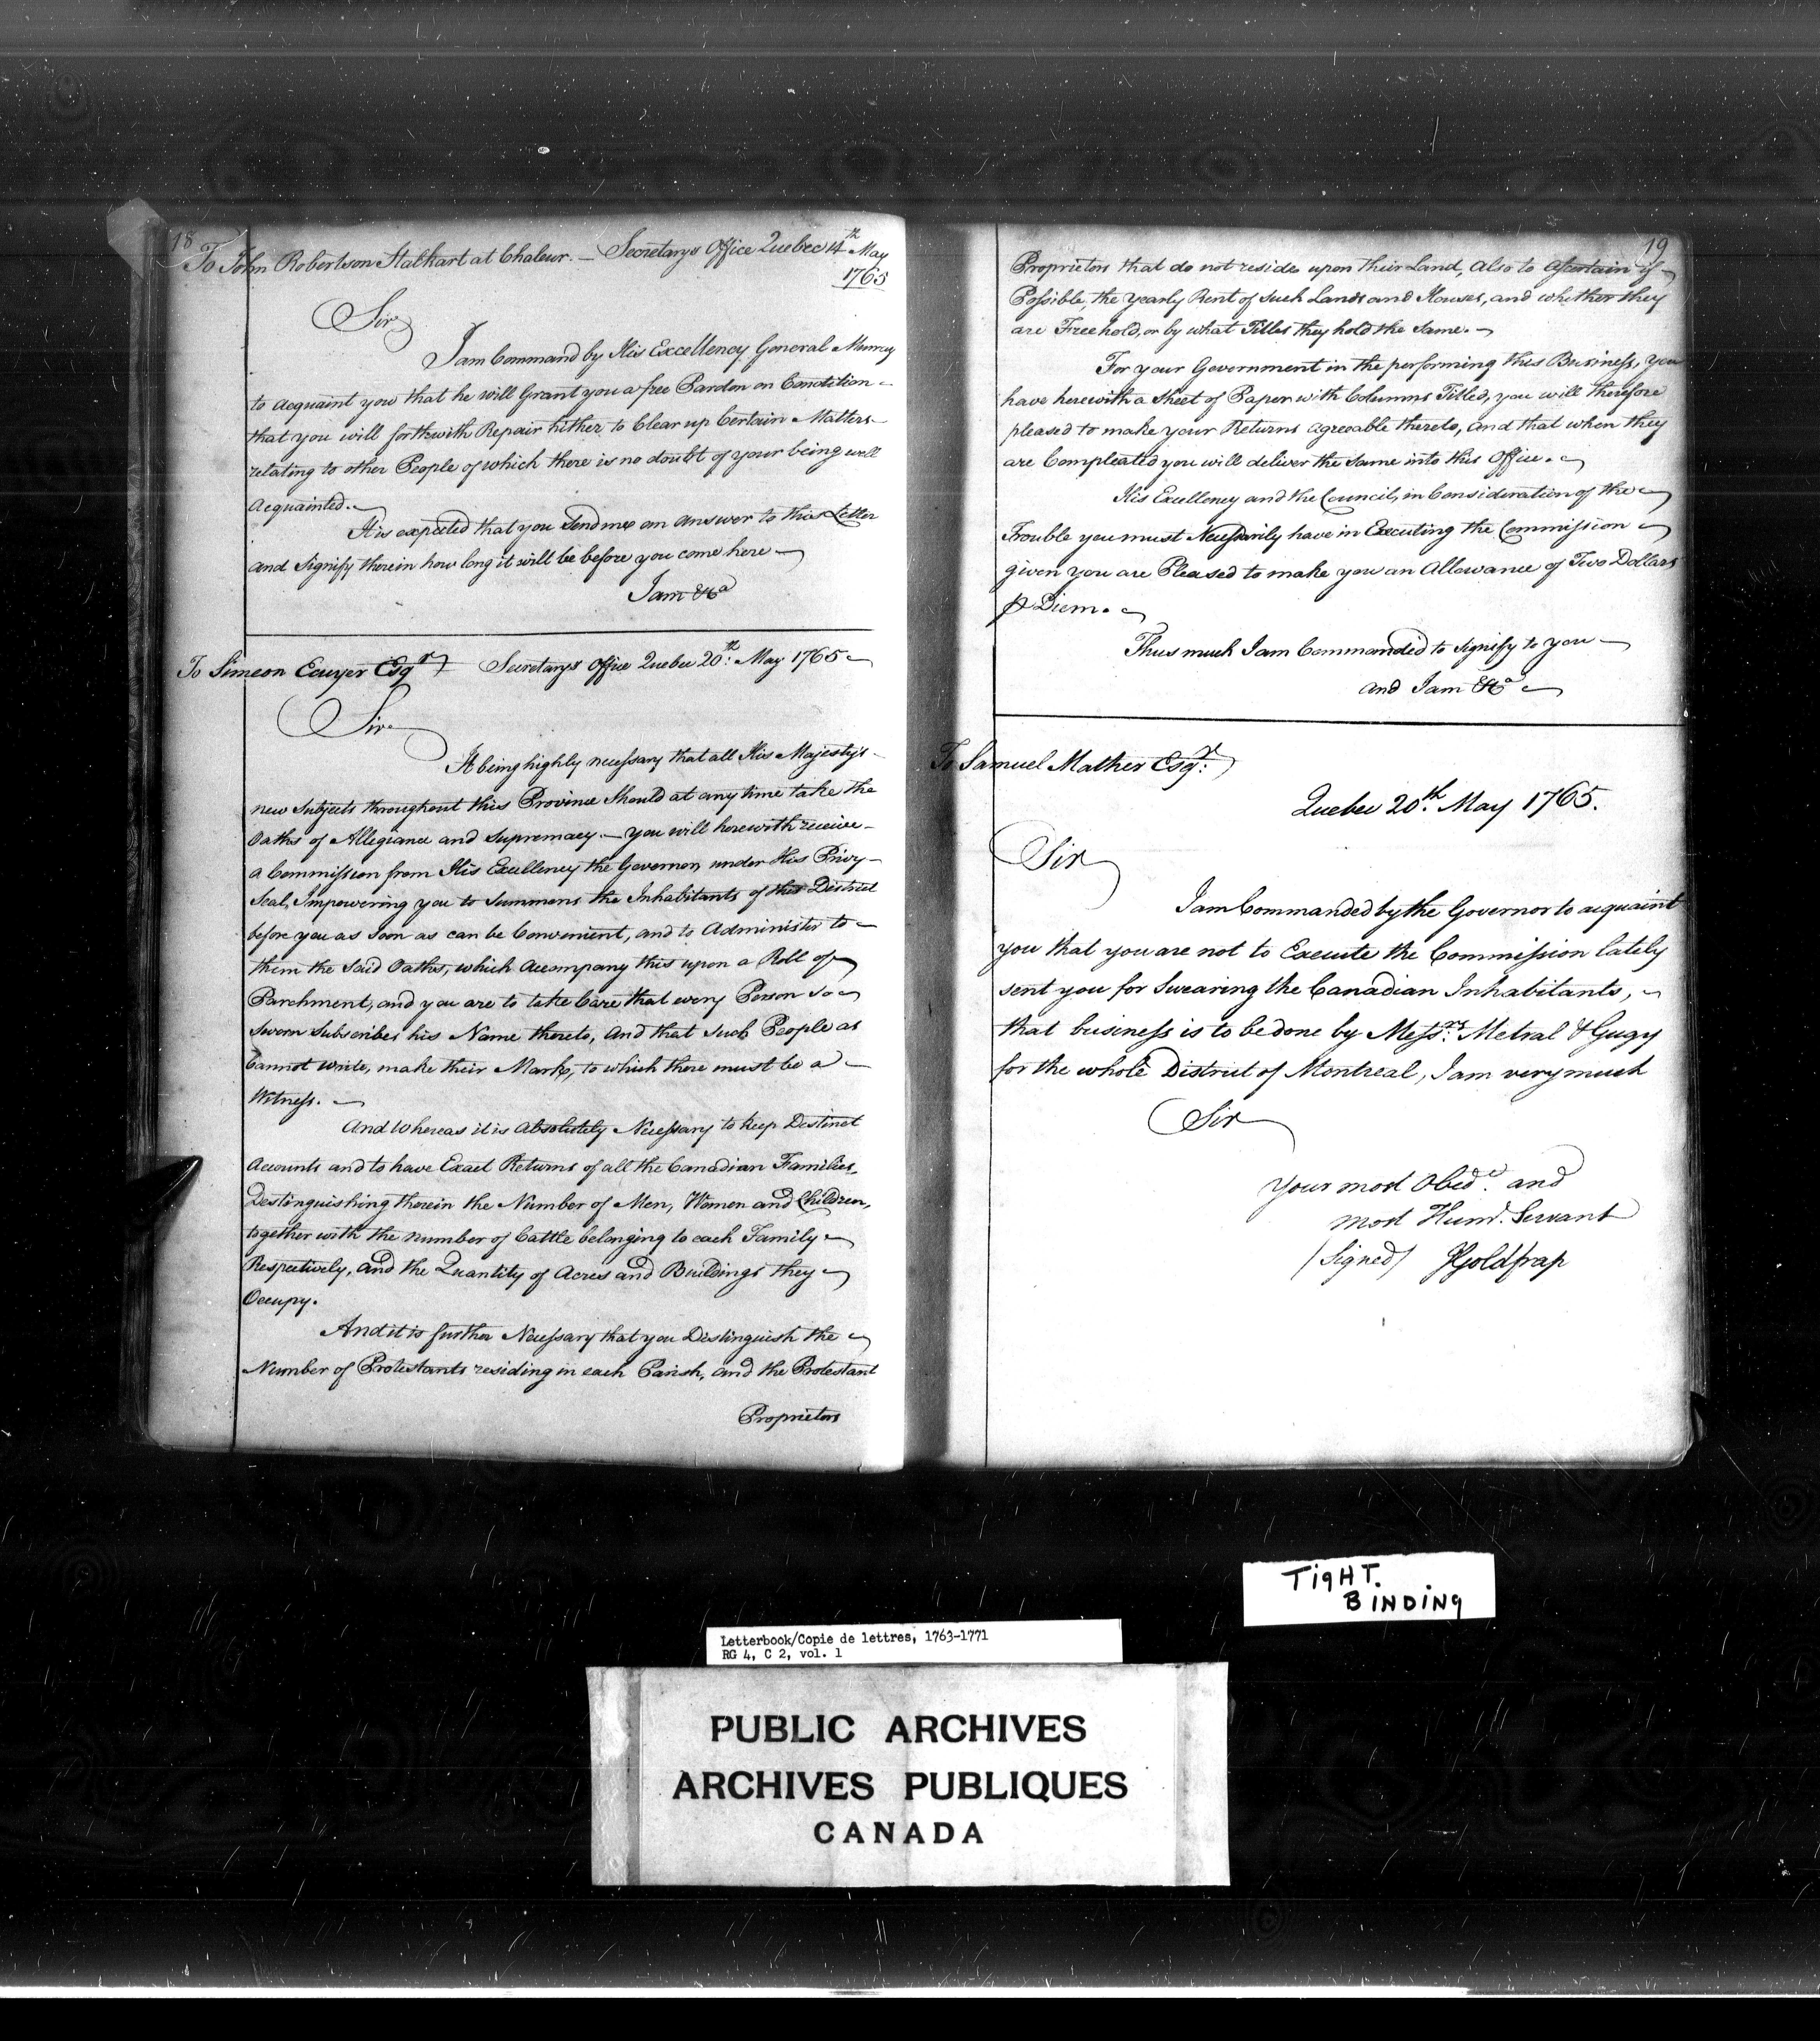 18
To John Robertson Stalkart at Chaleur. — Secretarys Office Quebec 14th May
1765
Sir
I am Command by His Excellency General Murray
to acquaint you that he will Grant you a free Pardon on Condition
that you will forthwith Repair hither to Clear up Certain Matters
relating to other People of which there is no doubt of your being well
Acquainted.
It is expected that you Send me an answer to this Letter
and Signify therein how long it will be before you come here
I am &ca
To Simeon Ecuyer Esqr Secretarys Office Quebec 20th: May 1765
Sir
It being highly necessary that all His Majesty's
new Subjects throughout this Province Should at any time take the
Oaths of Allegiance and Supremacy. — you will herewith receive
a Commission from His Excellency the Governor, under His Privy
Seal, Impowering you to Summons the Inhabitants of this District
before you as soon as can be Convenient, and to Administer to
them the said Oaths, which Accompany this upon a Roll of
Parchment, and you are to take Care that every Person so
Sworn Subscribes his Name thereto, and that Such People as
Cannot write, make their Mark, to which there must be a
Witness.
And Whereas it is Absolutely Necessary to keep Distinct
Accounts and to have Exact Returns of all the Canadian Families,
Destinguishing therein the Number of Men, Women and Children,
together with the number of Cattle belonging to each Family
Respectively, and the Quantity of Acres and Buildings they
Occupy.
And it is further Necessary that you Distinguish the
Number of Protestants residing in each Parish, and the Protestant
Proprietors
19
Proprietors that do not reside upon their Land, also to Ascertain if
Possible, the yearly Rent of such Lands and Houses, and whether they
are Freehold, or by what Titles they hold the Same.
For your Government in the performing this Business, you
have herewith a Sheet of Paper with Columns Titled, you will therefore
pleased to make your Returns agreeable thereto, and that when they
are Compleated you will deliver the Same into this Office.
His Excellency and the Council, in Consideration of the
Trouble you must Necessarily have in Executing the Commission
given you are Pleased to make you an Allowance of Two Dollars
⅌ Diem.
Thus much I am Commanded to signify to you
and I am &ca
To Samuel Mather Esqr:
Quebec 20th. May 1765.
Sir
I am Commanded by the Governor to acquaint
you that you are not to Execute the Commission lately
sent you for Swearing the Canadian Inhabitants,
that business is to be done by Messrs: Metral & Gugy
for the whole District of Montreal, I am very much
Sir
Your most Obedt. and
most Hum. Servant
(Signed) JGoldfrap
TigHT.
BINDINg
Letterbook/Copie de lettres, 1763-1771
RG 4, C 2, vol. 1
PUBLIC ARCHIVES
ARCHIVES PUBLIQUES
CANADA